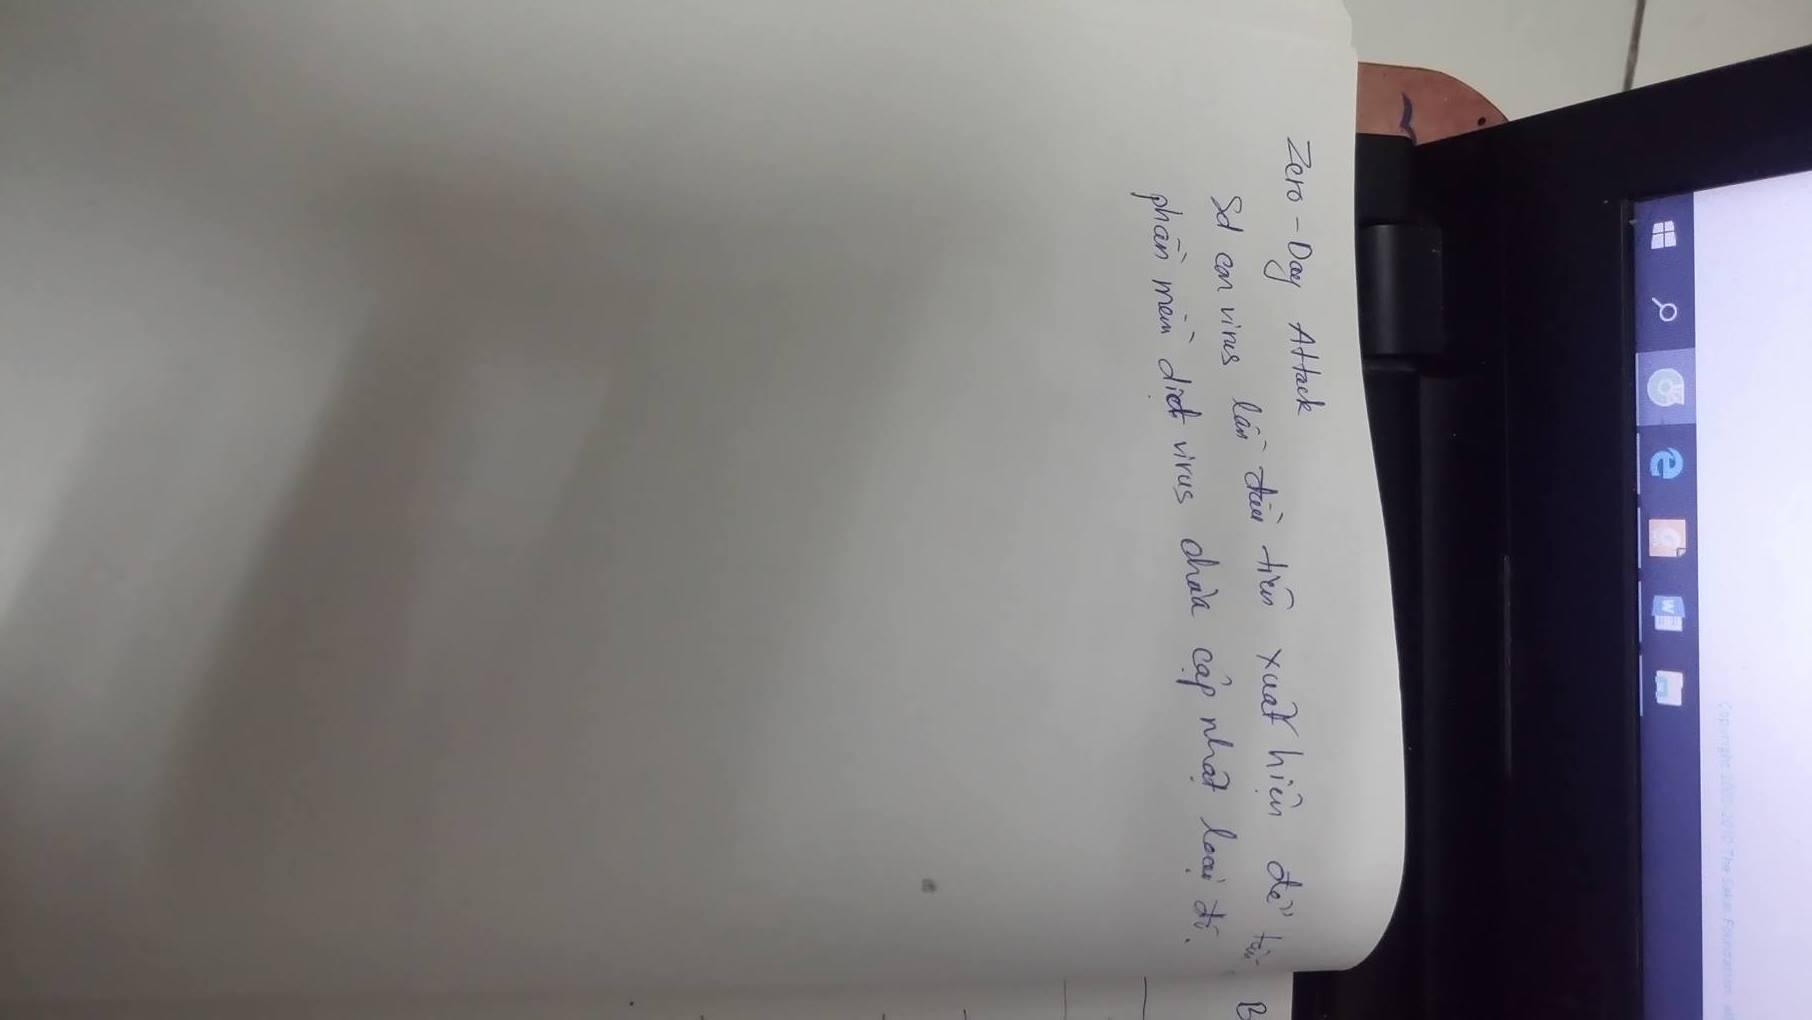 Copyright 2003-2010 The Sakai Foundation. All
Zero-Day Attack
Sd con virus lần đầu tiên xuất hiện để tấn
phần mềm diệt virus chưa cập nhật loại đó.
B